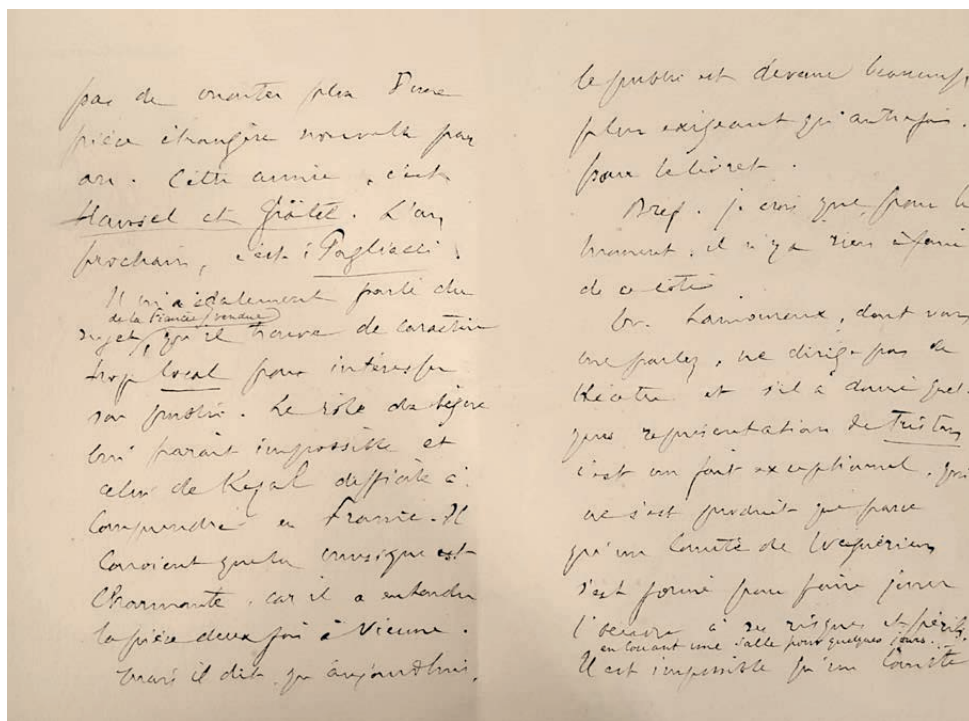 pas de monter plus d'une
pièce étrangère nouvelle par
an. Cette année, c'est
Hansel et Grätel. L'an
prochain, c'est : Pagliacci
Il m'a également parlé du
de la Fiancée vendue
sujet, qu'il trouve de caractère
trop local pour intéresser
son public. Le rôle du bègue
lui parait impossible et
celui de Kezal difficile à
comprendre en France. Il
convient que la musique est
charmante, car il a entendu
la pièce deux fois à Vienne.
Mais il dit qu'aujourd'hui,
le public est devenu beaucoup
plus exigeant qu'autrefois.
pour le livret.
Bref, je crois que, pour le
moment, il n'y a rien à faire
de ce côté
Mr. Lamoureux, dont vous
me parlez, ne dirige pas de
théâtre et s'il a donné quel-
ques représentations de Tristan,
c'est un fait exceptionnel, qui
ne s'est produit que parce
qu'un Comité de Wagnériens
s'est formé pour faire jouer
l'oeuvre à ses risques et périls,
en louant une salle pour quelques jours.
Il est impossible qu'un Comité